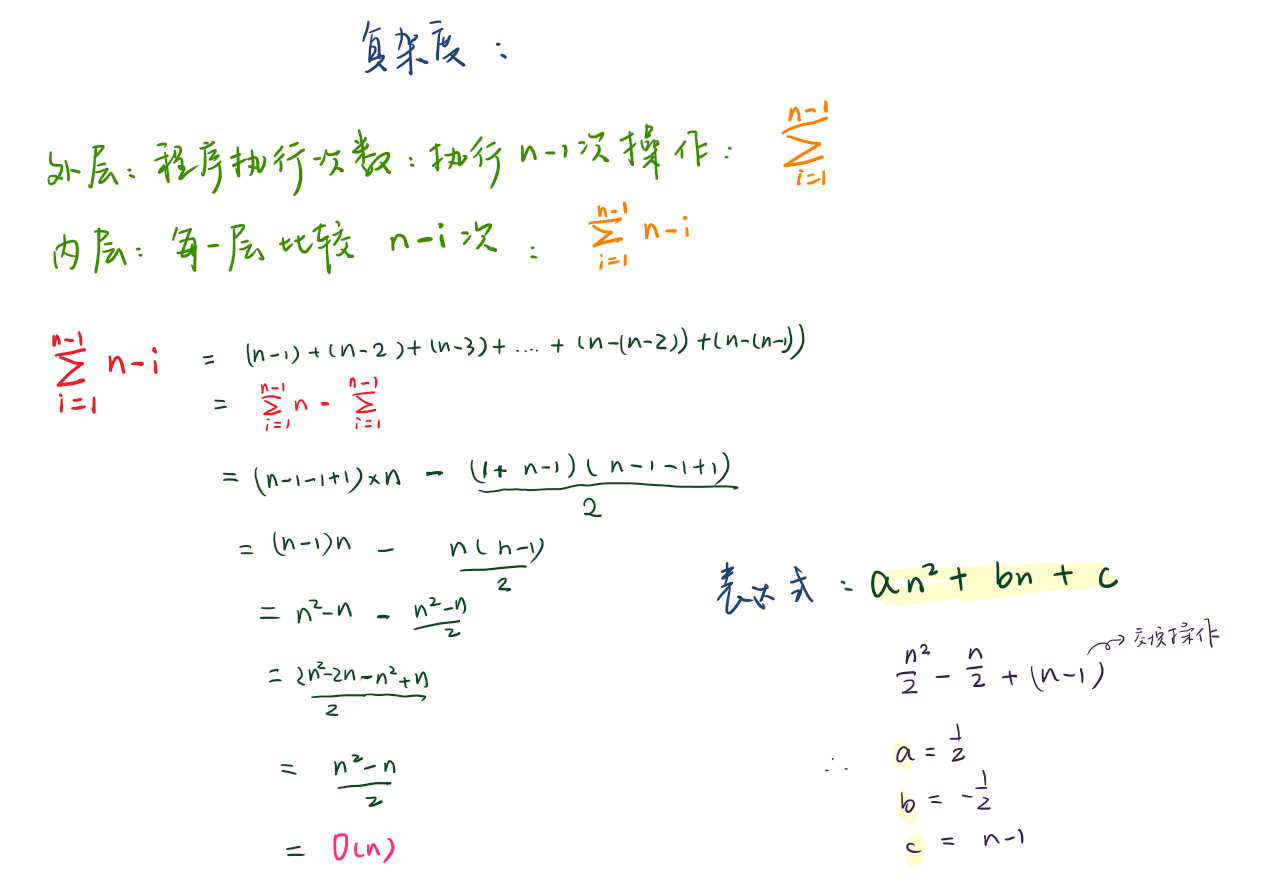 复杂度：
外层：程序执行次数：执行 n-1次操作： ∑_{i=1}^{n-1}
内层：每一层比较 n-i次： ∑_{i=1}^{n-1} n-i
∑_{i=1}^{n-1} n-i = (n-1)+(n-2)+(n-3)+....+(n-(n-2))+(n-(n-1))
= ∑_{i=1}^{n-1} n - ∑_{i=1}^{n-1}
= (n-1-1+1)×n - (1+n-1)(n-1-1+1)/2
= (n-1)n - n(n-1)/2
= n²-n - (n²-n)/2
= (2n²-2n-n²+n)/2
= (n²-n)/2
= O(n)
表达式：an²+bn+c
n²/2 - n/2 + (n-1) → 交换操作
∴ a = 1/2
b = -1/2
c = n-1